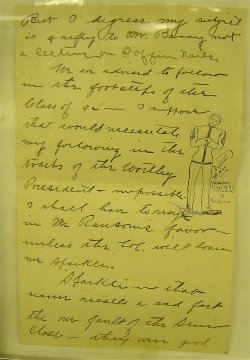 But I digress my subject
is a reply to Mr. Banny not
a lecture on Coffin Nails
We are advised to follow
in the footsteps of the
Class of 9 I suppose
that would necessitate
my following in the
tracks of the Worthy
President - impossible
I shall have to resign
in Mr Ransoms favor
unless the Col. will loan
me Sparkle.
Sparkle - that
name recalls a sad fact
the one fault of the Senior
Class - they own good